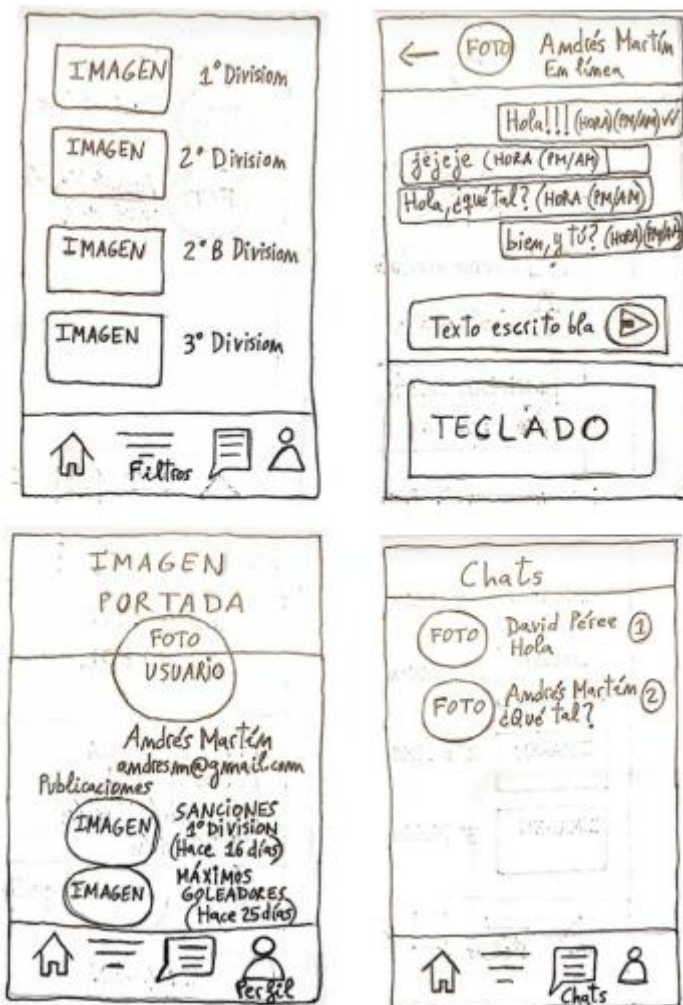 IMAGEN 1º Division
IMAGEN 2º Division
IMAGEN 2º B Division
IMAGEN 3º Division
Filtros
FOTO Andrés Martín
En línea
Hola!!! (HORA)(PM/AM)
jejeje (HORA (PM/AM)
Hola, ¿qué tal? (HORA (PM/AM)
bien, y tú? (HORA)(PM/AM)
Texto escrito bla
TECLADO
IMAGEN
PORTADA
FOTO
USUARIO
Andrés Martín
andresm@gmail.com
Publicaciones
IMAGEN SANCIONES
1º DIVISION
(Hace 16 días)
IMAGEN MÁXIMOS
GOLEADORES
(Hace 25 días)
Perfil
Chats
FOTO David Pérez 1
Hola
FOTO Andrés Martín 2
¿Qué tal?
Chats